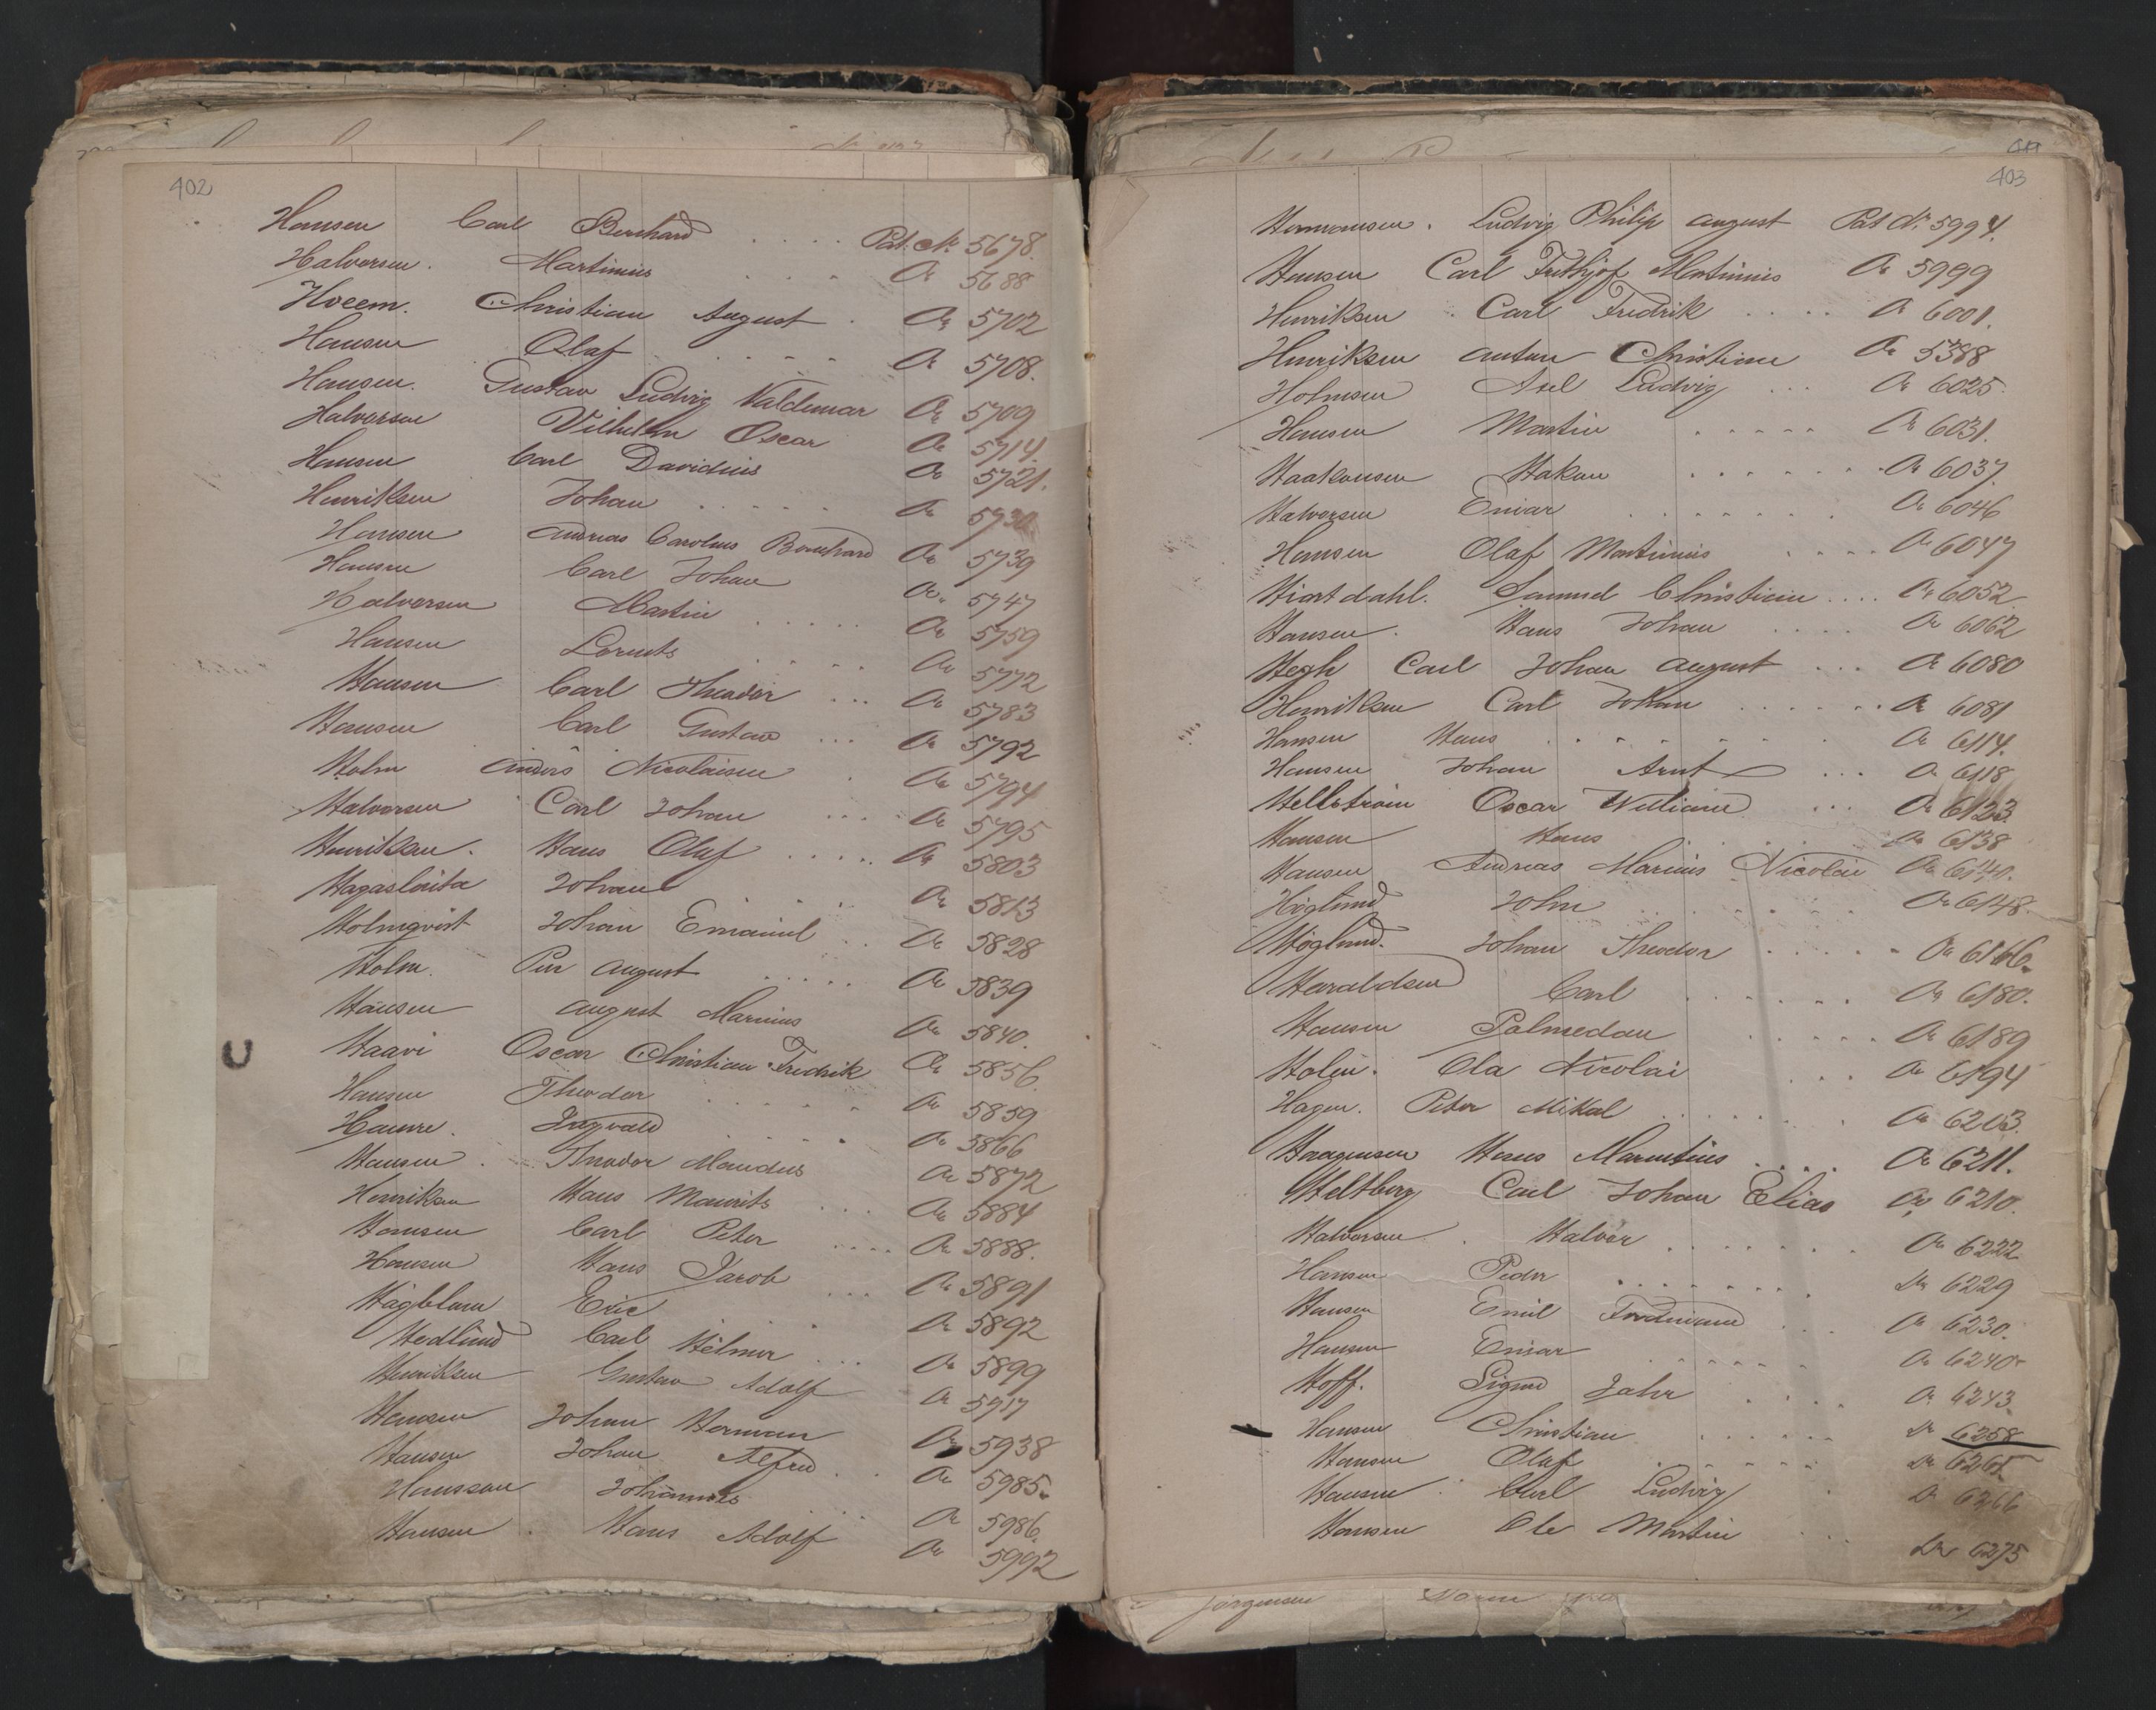 402
Hansen Carl Bernhard . . . . Pat. № 5678.
Halvorsen. Martinius . . . . Do 5688
Hoeem. Christian August . Do 5702
Hansen Olaf . . . . . Do 5708.
Hansen. Gustav Ludvig Valdemar Do 5709
Halvorsen Vilhelm Oscar Do 5714.
Hansen Carl Davidius Do 5721.
Henriksen Johan . . . . . . Do 5730
Hansen Andreas Carolus Bernhard Do 5739
Hansen Carl Johan Do. 5747
Halvorsen Martin . . . . . Do 5759
Hansen Lorents . . . . . Do 5772
Hansen Carl Theodor . . . Do 5783
Hansen Carl Gustav . . . Do 5792
Holm Anders Nicolaisen . Do 5794
Halvorsen Carl Johan . . . . Do 5795
Henriksen. Hans Olaf . . . . . Do 5803
Johan . . . Do 5813
Holmqvist Johan Emanuel . . Do 5828
Holm. Per August . . . . . Do 5839
Hansen August Marinius Do 5840.
Haavi Oscar Christian Fredrik Do 5856.
Hansen Theodor . . . . . Do 5859
Hamre. Dagvald . . . . . Do 5866
Hansen . Theodor Mandus Do 5872
Henriksen Hans Maurits . . . Do 5884
Hansen Carl Peter . . . . Do 5888.
Hansen Hans Jacob . . . Do 5891
Hägblom Eric . . . Do 5892
Hedlund Carl Hilmer . . . Do 5899
Henriksen Gustav Adolf Do 5917
Hansen Johan Herman Do 5938
Hansen Johan Alfred . . Do 5985.
Hansson Johannes . . . Do 5986.
Hansen . Hans Adolf Do 5992
403
Hermansen. Ludvig Philip August Pat № 5994.
Hansen Carl Frithjof Martinius Do 5999
Henriksen . Carl Fredrik . . . . . Do 6001.
Henriksen Anton Christian Do 5388
Holmsen Axel Ludvig . . . Do 6025.
Hansen Martin . . . . . Do 6031.
Haakonsen Hakon . . . . . . . Do 6037.
Halvorsen Einar . . . . . . . Do 6046
Hansen Olaf Martinius . . . . Do 6047
Hiortdahl. Samuel Christian . . . . Do 6052
Hansen. Hans Johan . . . . Do 6062
Hegh Carl Johan August . . . Do 6080
Henriksen Carl Johan . . . . . . Do 6081
Hansen Hans . . . . . . . Do 6114.
Hansen Johan Arnt . . . Do 6118
Hellström Oscar William . . . Do 6123.
Hansen Hans . . . . Do 6138
Hansen Andreas Marius Nicolai Do 6140.
Höglund John . . . . . . . Do 6148.
Höglund. Johan Theodor . . . . . Do 6166.
Haraldsen Carl . . . . . . Do 6180.
Hansen Palmedau . . . . . Do 6189
Holm. Ola Nicolai . . . Do 6194
Hagen. Peter Mikal . . . . . . Do 6203.
Haagensen Hans Marentius . . . . Do 6211.
Heltberg Carl Johan Elias Do 6210.
Halvorsen . Halvor . . . . . . . Do 6222
Hansen Peder . . . . . . . Do 6229
Hansen Emil Ferdinand . . . Do 6230.
Hansen Einar . . . . . Do 6240.
Hoff. Sigurd Jahr . . . . Do 6243.
Hansen Christian . . . . . . Do 6258
Hansen Olaf . . . . . Do 6265
Hansen . Carl Ludvig . Do 6266
Hansen Ole Martin . . Do 6275
Jörgensen